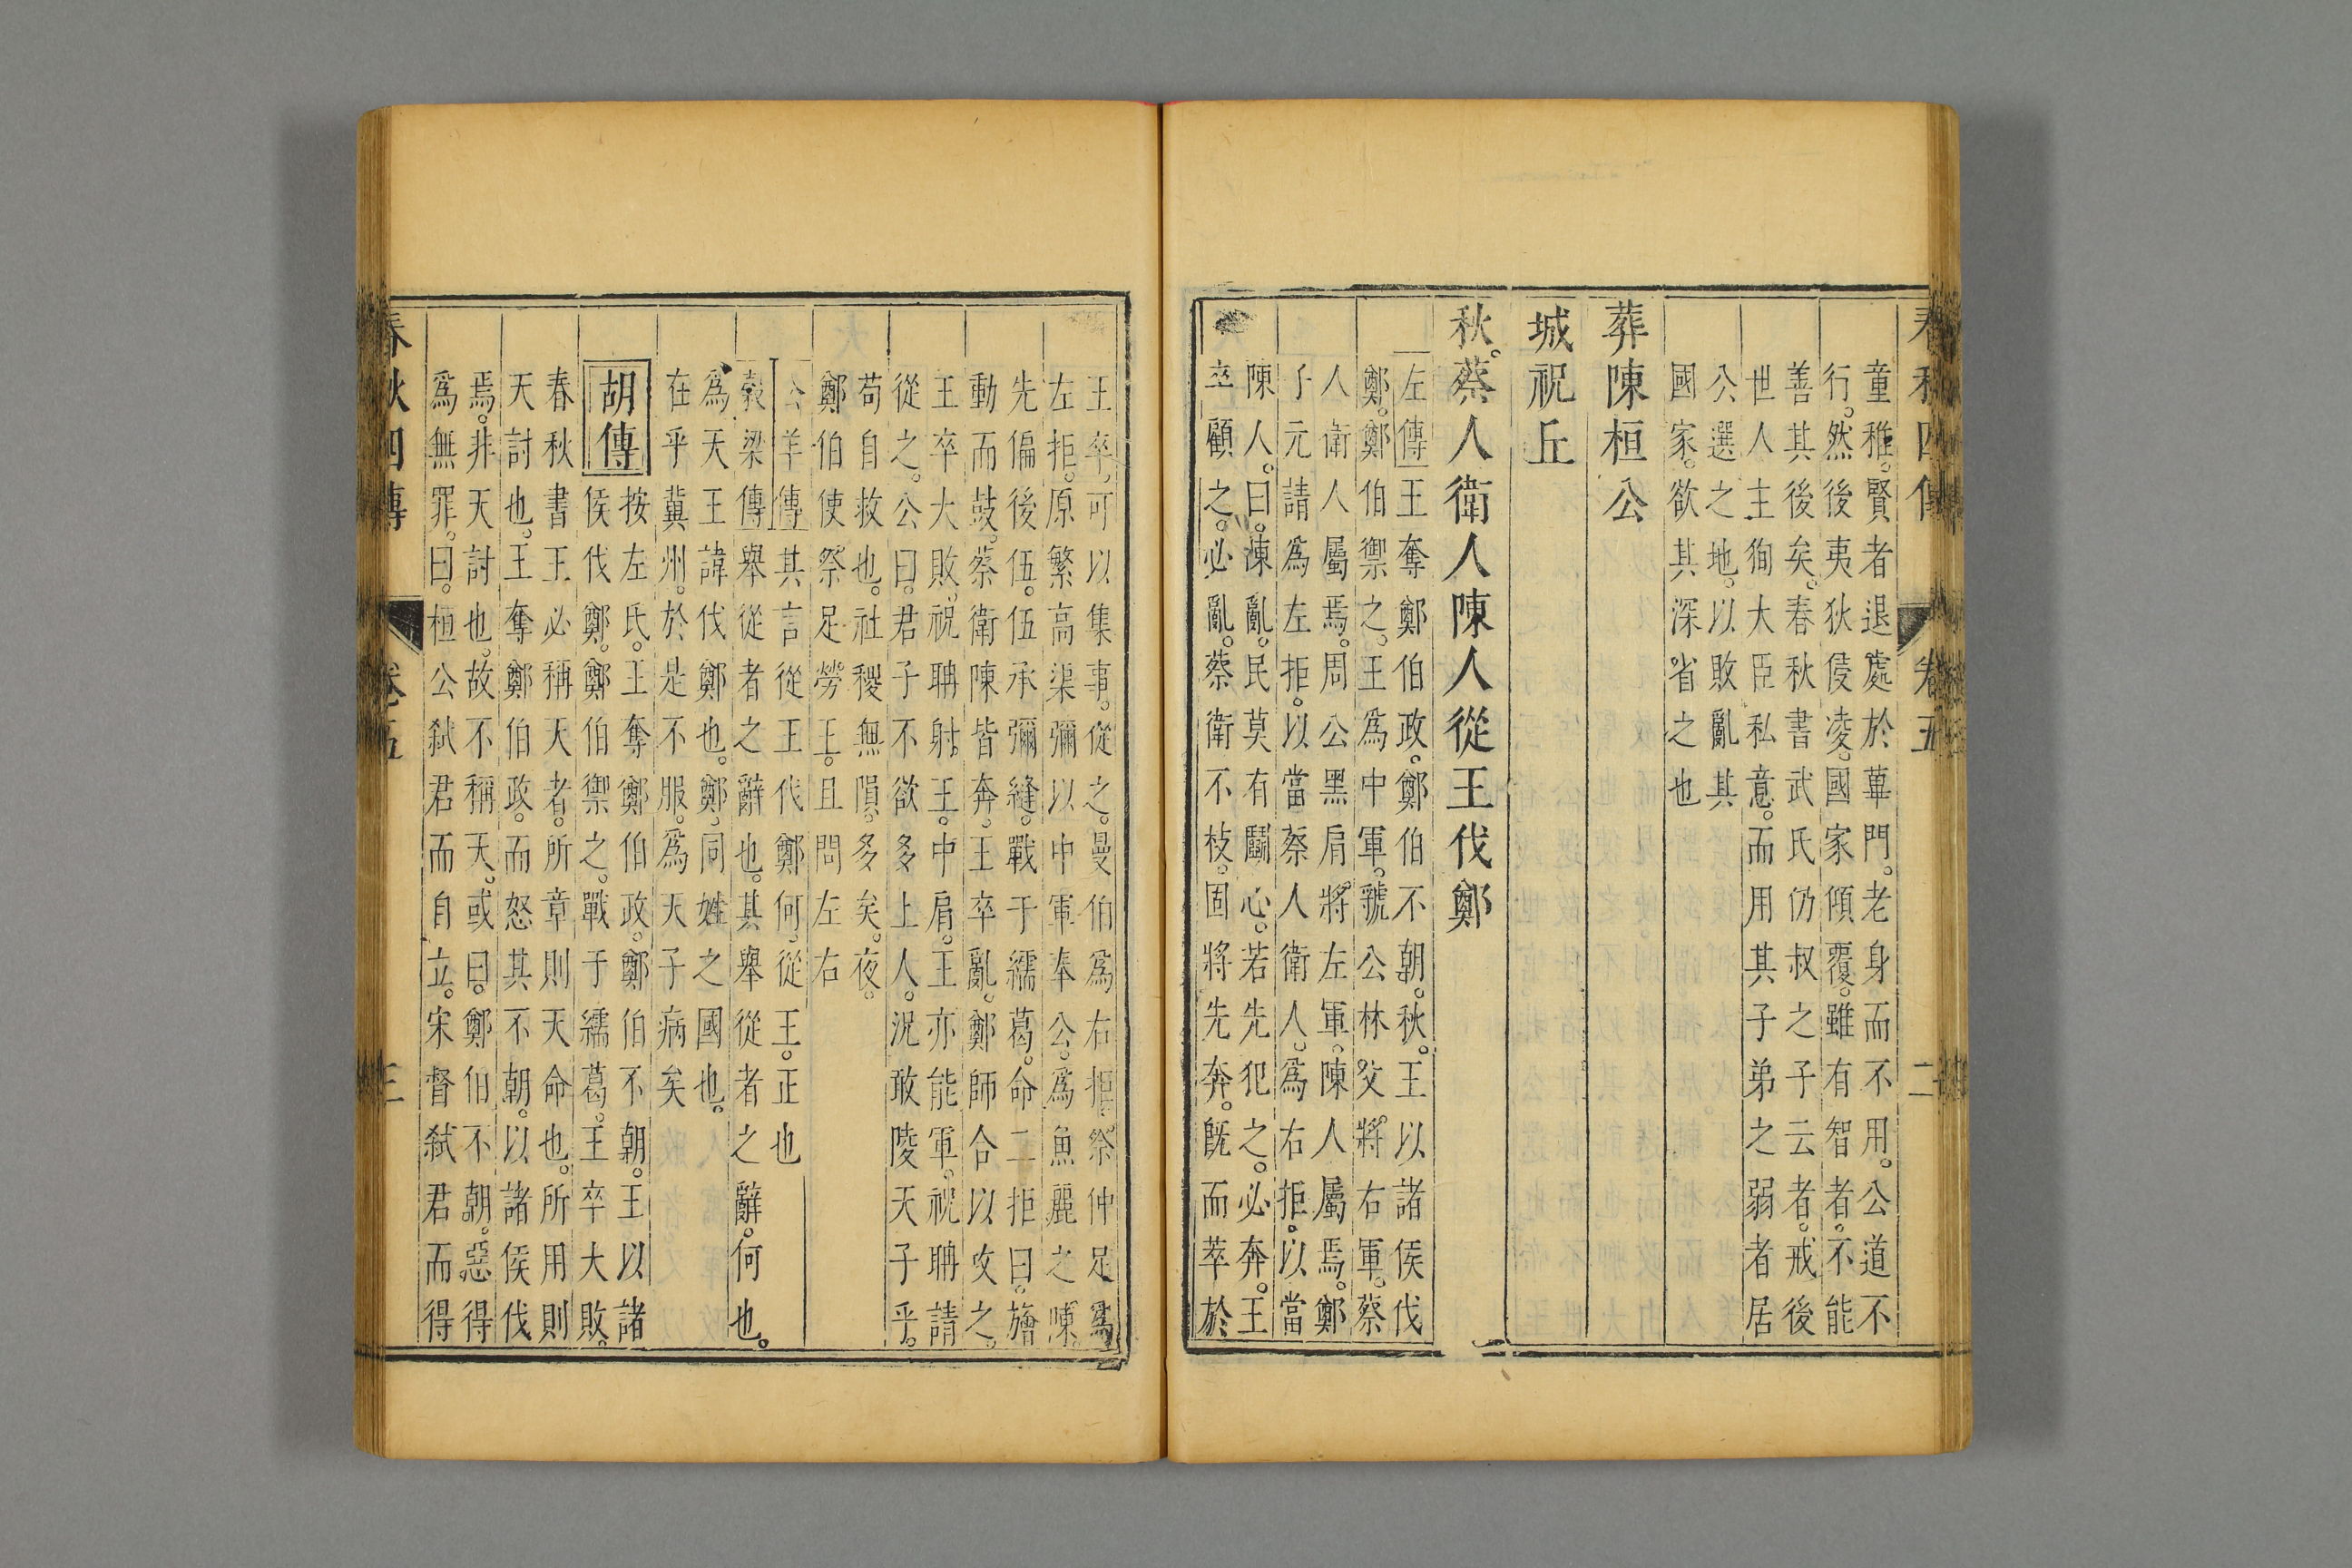 春秋四傳 卷五 二
童稚。賢者退處於蓽門。老身而不用。公道不
行。然後夷狄侵凌。國家傾覆。雖有智者。不能
善其後矣。春秋書武氏仍叔之子云者。戒後
世人主徇大臣私意。而用其子弟之弱者居
公選之地。以敗亂其
國家。欲其深省之也
葬陳桓公
城祝丘
秋。蔡人衛人陳人從王伐鄭
左傳王奪鄭伯政。鄭伯不朝。秋。王以諸侯伐
鄭。鄭伯禦之。王爲中軍。虢公林父。將右軍。蔡
人衛人屬焉。周公黑肩。將左軍。陳人屬焉。鄭
子元請爲左拒。以當蔡人衛人。爲右拒。以當
陳人。曰。陳亂。民莫有鬭心。若先犯之。必奔。王
卒顧之。必亂。蔡衛不枝。固將先奔。旣而萃於
王卒。可以集事。從之。曼伯爲右拒。祭仲足爲
左拒。原繁高渠彌以中軍奉公。爲魚麗之陳。
先偏後伍。伍承彌縫。戰于繻葛。命二拒曰。旝
動而鼓。蔡衛陳皆奔。王卒亂。鄭師合以攻之。
王卒大敗。祝聃射王。中肩。王亦能軍。祝聃請
從之。公曰。君子不欲多上人。況敢陵天子乎。
苟自救也。社稷無隕。多矣。夜。
鄭伯使祭足勞王。且問左右
公羊傳其言從王伐鄭何。從王。正也
穀梁傳舉從者之辭也。其舉從者之辭。何也。
爲天王諱伐鄭也。鄭。同姓之國也。
在乎冀州。於是不服。爲天子病矣
胡傳按左氏。王奪鄭伯政。鄭伯不朝。王以諸
侯伐鄭。鄭伯禦之。戰于繻葛。王卒大敗。
春秋書王必稱天者。所章則天命也。所用則
天討也。王奪鄭伯政。而怒其不朝。以諸侯伐
焉。非天討也。故不稱天。或曰。鄭伯不朝。惡得
爲無罪。曰。桓公弑君而自立。宋督弑君而得
春秋四傳 卷五 三